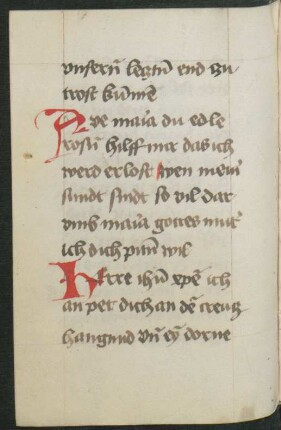 vnsern̄ lecztn̄ end zu
trost kum̄e
Ave maria du edle
rosn̄ hilff mir das ich
werd erlost wen mein
sundt sindt so vil dar
vmb maria gottes mut̄
ich dich pittn̄ wil
Herre ihū xp̄e ich
an pet dich an dē creutz
hangund vn̄ ey dorne